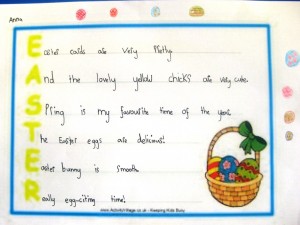 Anna
Easter cards are very pretty
And the lovely yellow chicks are very cute.
Spring is my favourite time of the year.
The Easter eggs are delicious!
Easter bunny is smooth
Really egg-citing time!
www.ActivityVillage.co.uk - Keeping Kids Busy